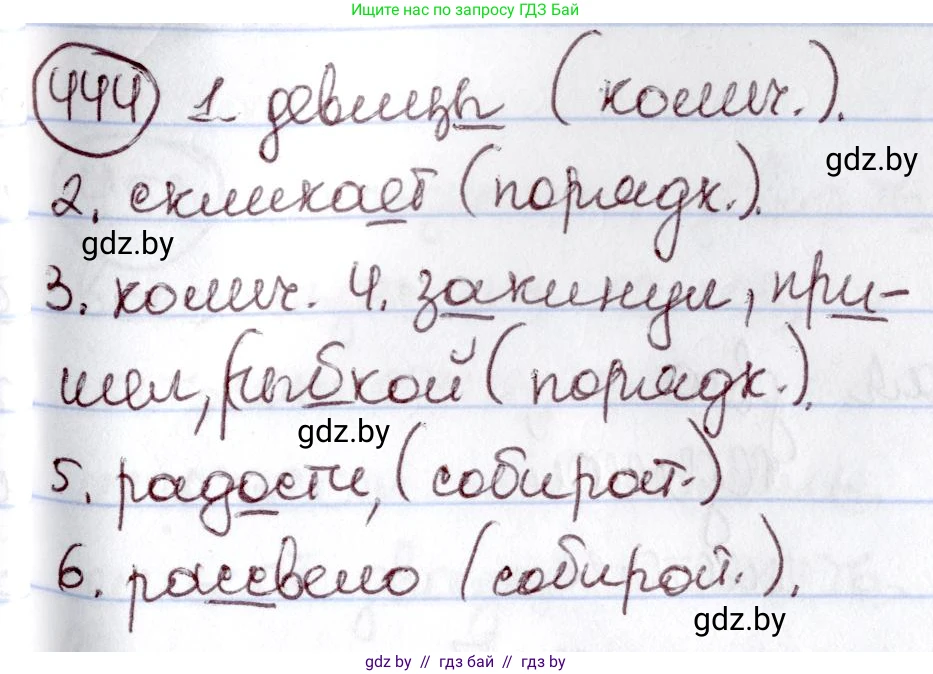 Ищите нас по запросу ГДЗ Бай
444 1 девицы (колич.).
gdz.by
2. скликает (порядк.).
gdz.by
3. колич. 4. закинул, при-
шел, рыбкой (порядк.).
gdz.by
5. радости, (собират.)
6. рассвело (собират.).
gdz.by
gdz by // гдз бай // gdz by